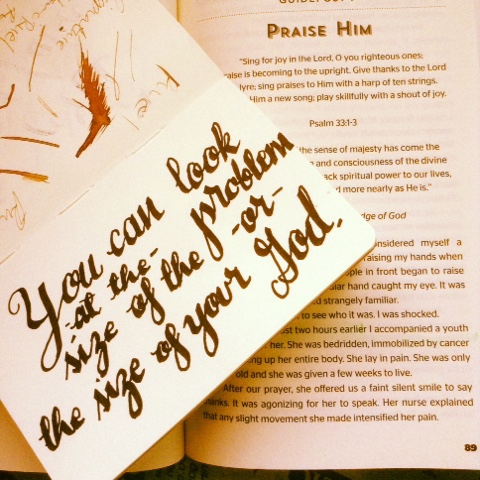 PRAISE HIM
"Sing for joy in the Lord, O you righteous ones;
is becoming to the upright. Give thanks to the Lord
lyre; sing praises to Him with a harp of ten strings.
Him a new song; play skillfully with a shout of joy.
Psalm 33:1-3
the sense of majesty has come the
and consciousness of the divine
spiritual power to our lives,
more nearly as He is."
of God
myself a
raising my hands when
people in front began to raise
hand caught my eye. It was
strangely familiar.
to see who it was. I was shocked.
two hours earlier I accompanied a youth
her. She was bedridden, immobilized by cancer
up her entire body. She lay in pain. She was only
old and she was given a few weeks to live.
After our prayer, she offered us a faint silent smile to say
It was agonizing for her to speak. Her nurse explained
that any slight movement she made intensified her pain.
89
You can look
-at the-
size of the problem
-or-
the size of your God.